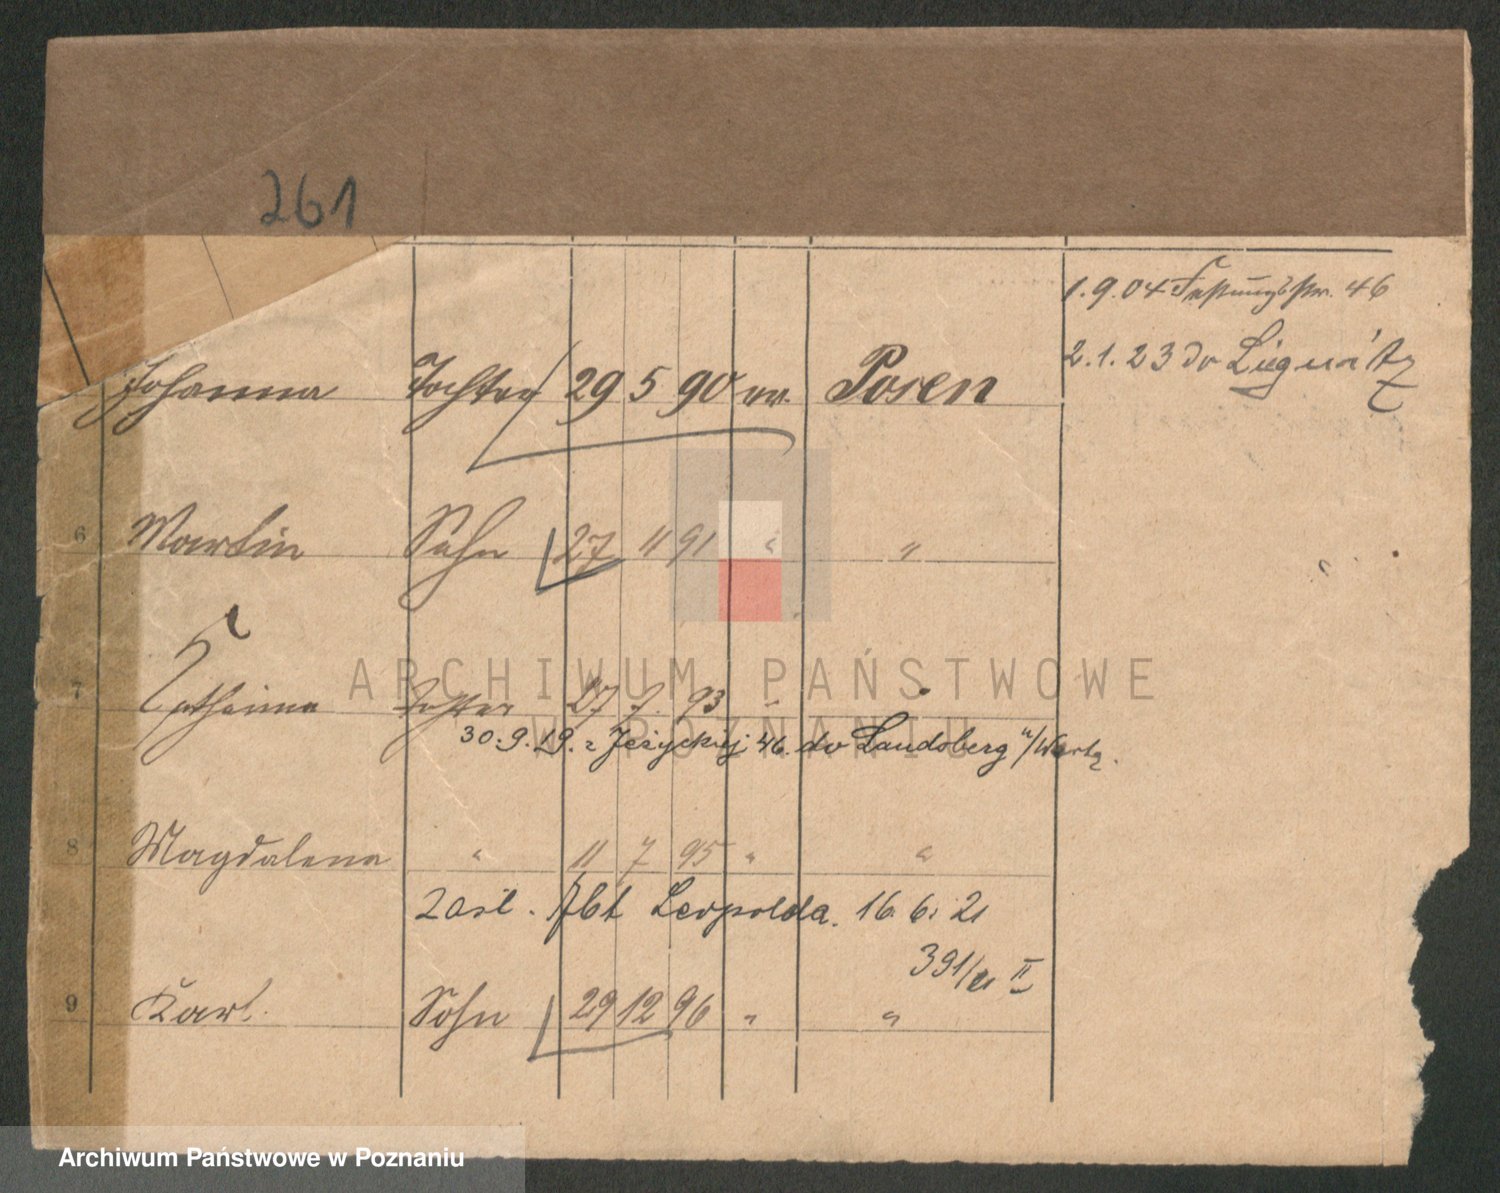 261
1.9.04 Festungsstr. 46
2.1.23 do Liegnitz
Johanna Tochter 29 5 90 ev. Posen
6 Martin Sohn 27 11 91 " "
7 Katharina Tochter 27 7. 93 "
30.9.19. z Jeżyckiej 46. do Landsberg n/Warta.
8 Magdalena " 11 7 95 " "
zaśl. Abt Leopolda. 16. 6. 21
391/21 II
9 Karl. Sohn 29 12 96 " "
ARCHIWUM PAŃSTWOWE
W POZNANIU
Archiwum Państwowe w Poznaniu